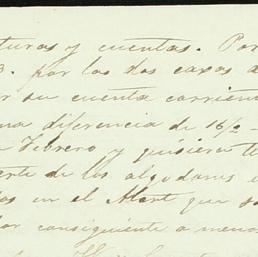 turas y cuentas. Por
3. por las dos caxas d
r su cuenta corrien
na diferencia de 16/2
Febrero y quisiera t
erte de los algodones
os en el Abert que s
por consiguiente a meno